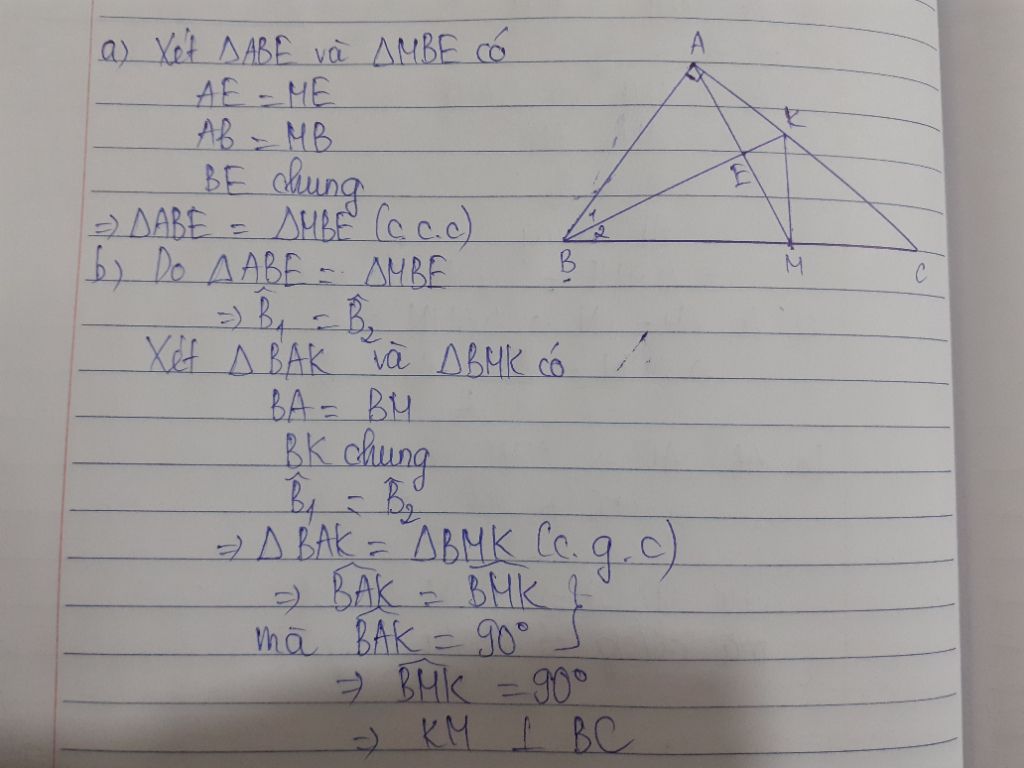 a) Xét ΔABE và ΔMBE có
AE = ME
AB = MB
BE chung
⇒ ΔABE = ΔMBE (c.c.c)
b) Do ΔABE = ΔMBE
⇒ B̂₁ = B̂₂
Xét ΔBAK và ΔBMK có
BA = BM
BK chung
B̂₁ = B̂₂
⇒ ΔBAK = ΔBMK (c.g.c)
⇒ B̂AK = B̂MK }
mà B̂AK = 90°
⇒ B̂MK = 90°
⇒ KM ⊥ BC
A
K
E
1
2
B
M
C